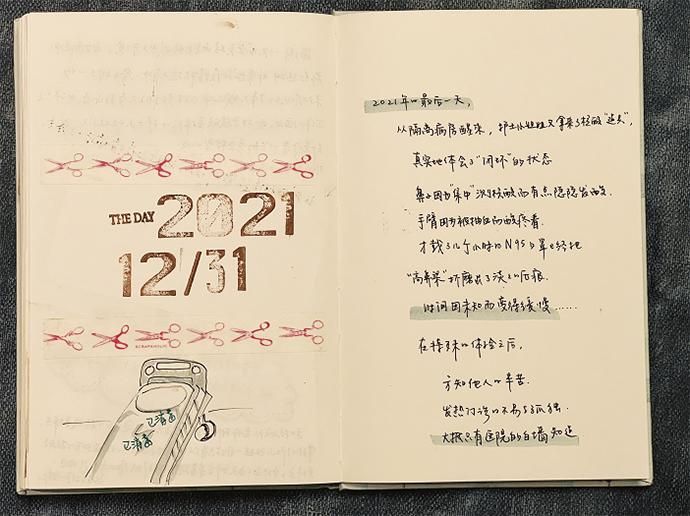 THE DAY 2021
12/31
SCRAPAHOLIC
已消毒
已消毒
2021年的最后一天,
从隔离病房醒来,护士小姐姐又拿来了核酸“进尖”,
真实地体会了“闭环”的状态
鼻子因为“集中”测核酸而有点隐隐发酸
手臂因为被抽血而酸疼着
才戴了几个小时的N95口罩已经把
“高鼻梁”折磨出了淡淡的压痕
时间因未知而变得缓慢……
在特殊的体验之后,
方知他人的辛苦.
发热门诊的不易与孤独.
大抵只有医院的白墙知道